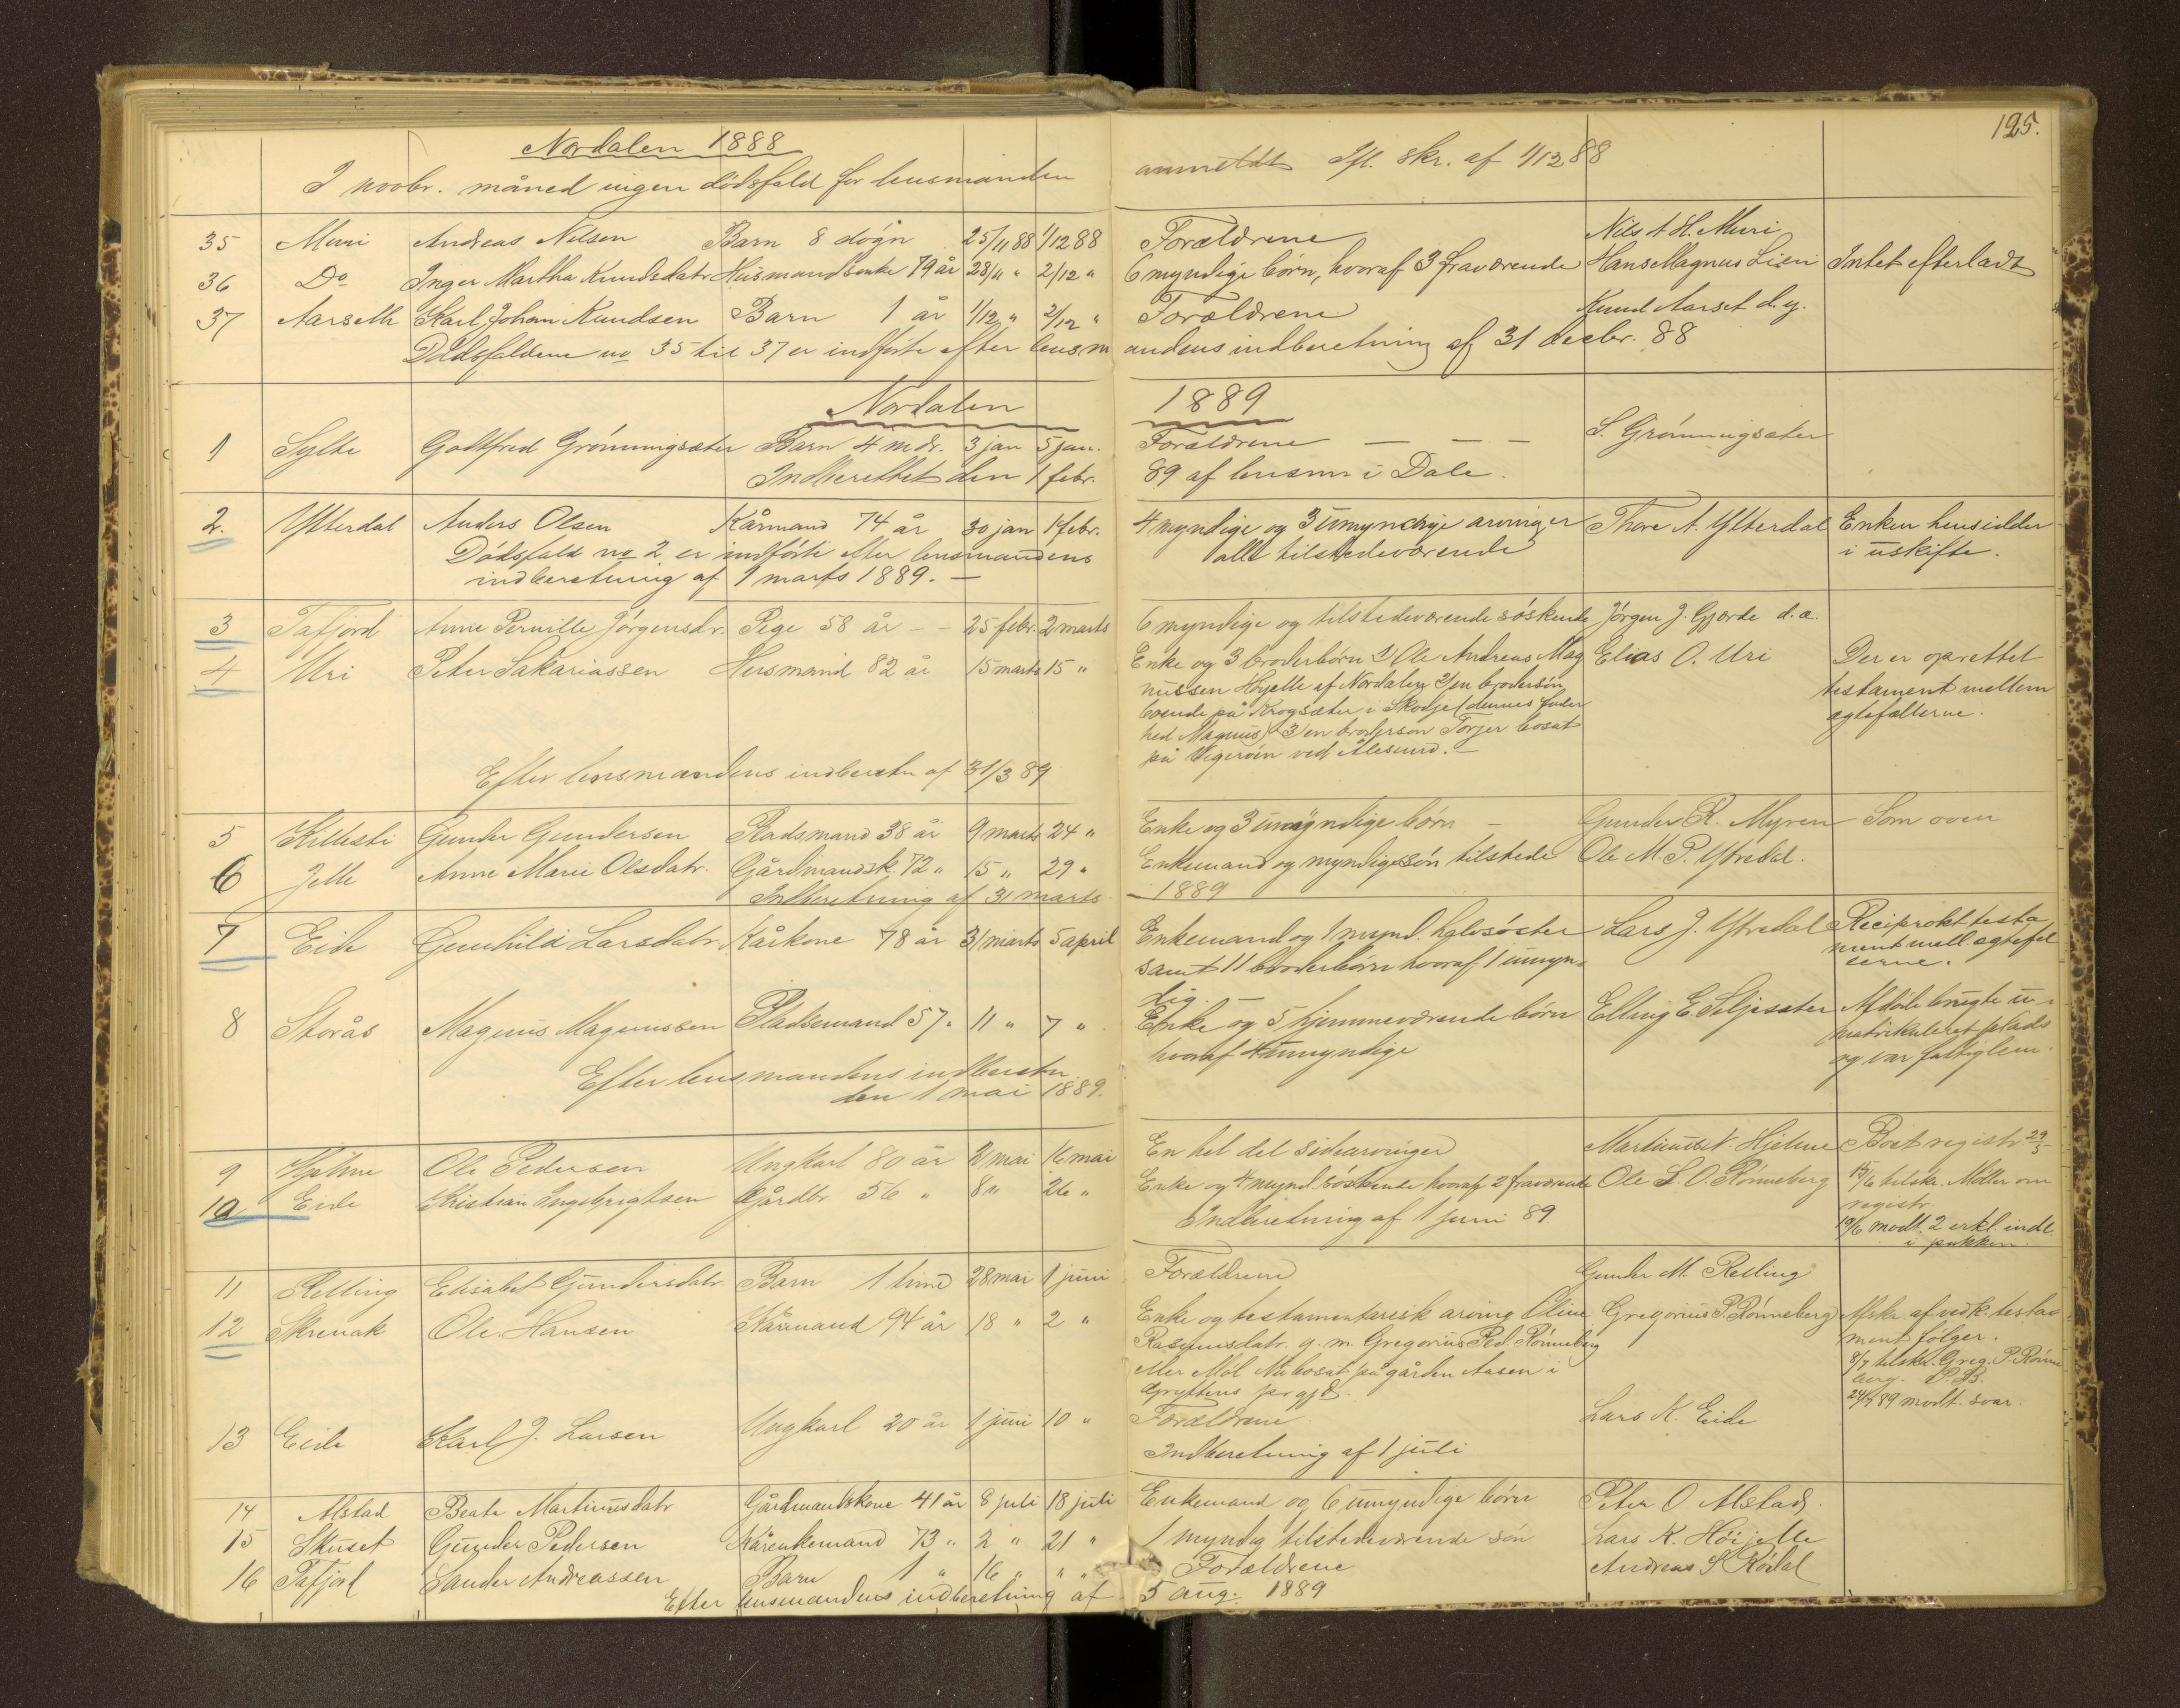 125.
Nordalen 1888
I novbr. måned ingen dødsfald for lensmanden anmeldt Ifl. skr. af 1/12 88
35 Muri Andreas Nilsen Barn 8 døgn 25/11 88 1/12 88 Forældrene Nils A H. Muri
36 Do Inger Martha Knudsdatr Husmandsenke 79 år 28/11 " 2/12 " 6 myndige børn, hvoraf 3 fraværende Hans Magnus Lien Intet efterladt
37 Aarseth Karl Johan Knudsen Barn 1 år 1/12 " 2/12 " Forældrene Knud Aarset d.y.
Dødsfaldene no 35 til 37 er indførte efter lensmandens indberetning af 31 decbr. 88
Nordalen 1889
1 Sylte Godtfred Grønningsæter Barn 4 mdr. 3 jan 5 jan. Forældrene — — — S. Grønningsæter
Indberettet den 1 febr. 89 af lensm i Dale.
2. Ytterdal Anders Olsen Kårmand 74 år 30 jan 1 febr. 4 myndige og 3 umyndige arvinger Thore A. Ytterdal Enken hensidder
Dødsfald no 2 er indførte efter lensmandens alle tilstedeværende i uskifte.
indberetning af 1 marts 1889. —
3 Tafjord Anne Pernille Jørgensdr. Pige 58 år — 25 febr. 2 marts 6 myndige og tilstedeværende søskende Jørgen J. Gjærde d.æ.
4 Uri Peter Sakariassen Husmand 82 år 15 marts 15 " Enke og 3 broderbørn 1) Ole Andreas Mag Elias O. Uri Der er oprettet
nussen Høyelle af Nordalen 2/ en brodersøn testament mellem
boende på Krogsæter i Skodje (dennes fader ægtefællerne.
hed Magnus) 3/ en brodersøn Torjer bosat
på Vigerøen ved Ålesund. —
Efter lensmandens indberetn af 31/3 89
5 Killisti Gunder Gundersen Pladsmand 38 år 9 marts 24 " Enke og 3 umyndige børn — Gunder R. Myren Som oven
6 Jelle Anne Marie Olsdatr. Gårdmandsk. 72 " 15 " 29 " Enkemand og myndig søn tilstede Ole M. P. Ytredal.
Indberetning af 31 marts 1889
7 Eide Gunhild Larsdatr. Kårkone 78 år 31 marts 5 april Enkemand og 1 mynd. halvsøster Lars J. Ytredal Reciprokt testa
samt 11 broderbørn hvoraf 1 umyn- ment mell. ægtefæl
dig. — lerne.
8 Storås Magnus Magnussen Pladsemand 57 " 11 " 7 " Enke og 5 hjemmeværende børn Elling E. Siljesæter Afdøde brugte u-
hvoraf 4 umyndige matrikuleret plads
og var fattiglem.
Efter lensmandens indberetn
den 1 mai 1889.
9 Hjelme Ole Pedersen Ungkarl 80 år 2 mai 16 mai En hel del sidearvinger Martinus N. Hjelme Boet registr 29/5
10 Eide Kristian Ingebrigtsen Gårdbr. 56 " 8 " 26 " Enke og 4 mynd. søskende hvoraf 2 fraværende Ole L. O. Rønneberg 15/6 tilskr. Møller om
registr.
Indberetning af 1 juni 89. 19/6 modt. 2 erkl. indl.
i pakken
11 Relling Elisabet Gundersdatr. Barn 1 time 28 mai 1 juni Forældrene Gunder M. Relling
12 Skrenak Ole Hansen Kårmand 94 år 18 " 2 " Enke og testamentarisk arving Oline Gregorius P. Rønneberg Afskr. af vedk. testa
Rasmusdatr. g. m. Gregorius Ped. Rønneberg ment følger.
eller Møl Nu bosat på gården Aasen i 8/7 tilskr. Greg. P. Rønne
Gryttens prgjd. berg. P. B.
24/7 89 modt. svar.
13 Eide Karl J. Larsen Ungkarl 20 år 1 juni 10 " Forældrene Lars K. Eide
Indberetning af 1 juli
14 Alstad Beate Martinusdatr Gårdmandskone 41 år 8 juli 18 juli Enkemand og 6 umyndige børn Peter O Alstad.
15 Skuset Gunder Pedersen Kårenkemand 73 " 2 " 21 " 1 myndig tilstedeværende søn Lars K. Høijelle
16 Tafjord Sander Andreassen Barn 1 " 16 " " " Forældrene Andreas S Rødal
Efter lensmandens indberetning af 5 aug. 1889